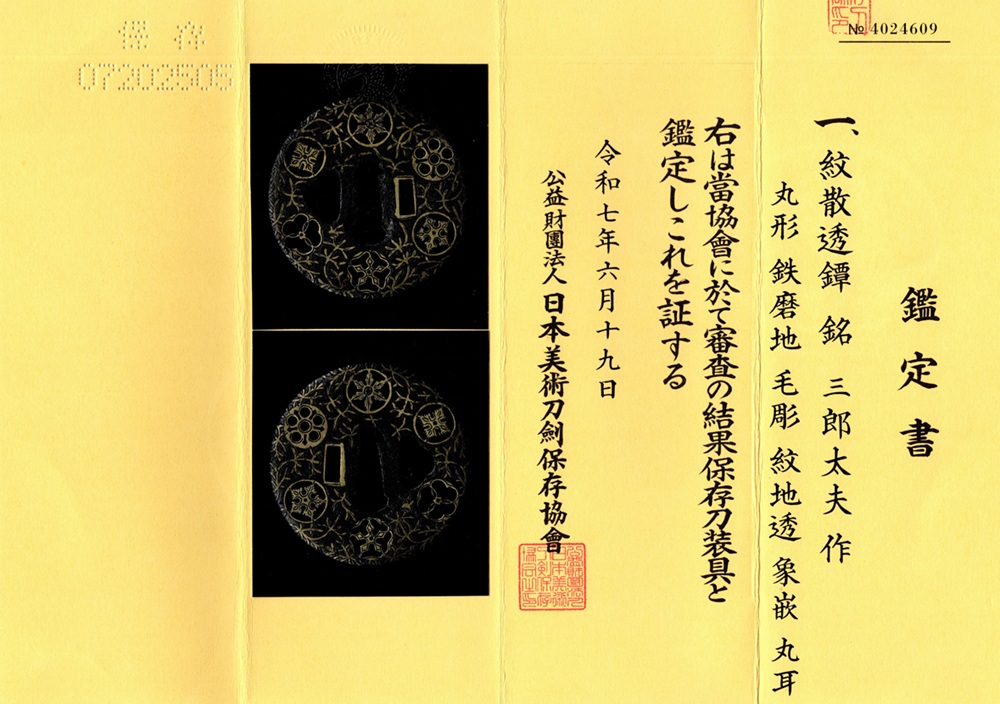 № 4024609
鑑定書
一、紋散透鐔 銘 三郎太夫作
丸形 鉄磨地 毛彫 紋地透 象嵌 丸耳
右は當協會に於て審査の結果保存刀装具と
鑑定しこれを証する
令和七年六月十九日
公益財團法人 日本美術刀劍保存協會
保存
07202505